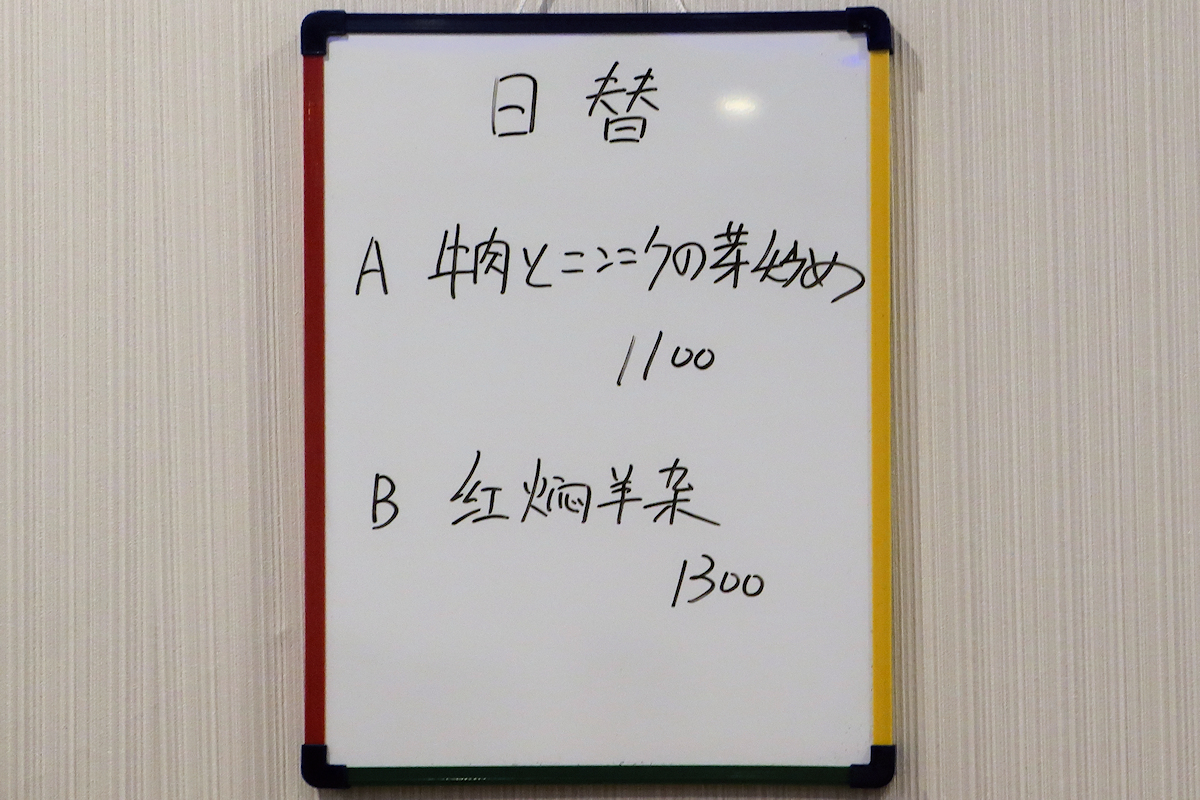 日替
A 牛肉とニンニクの芽炒め
1100
B 红焖羊杂
1300